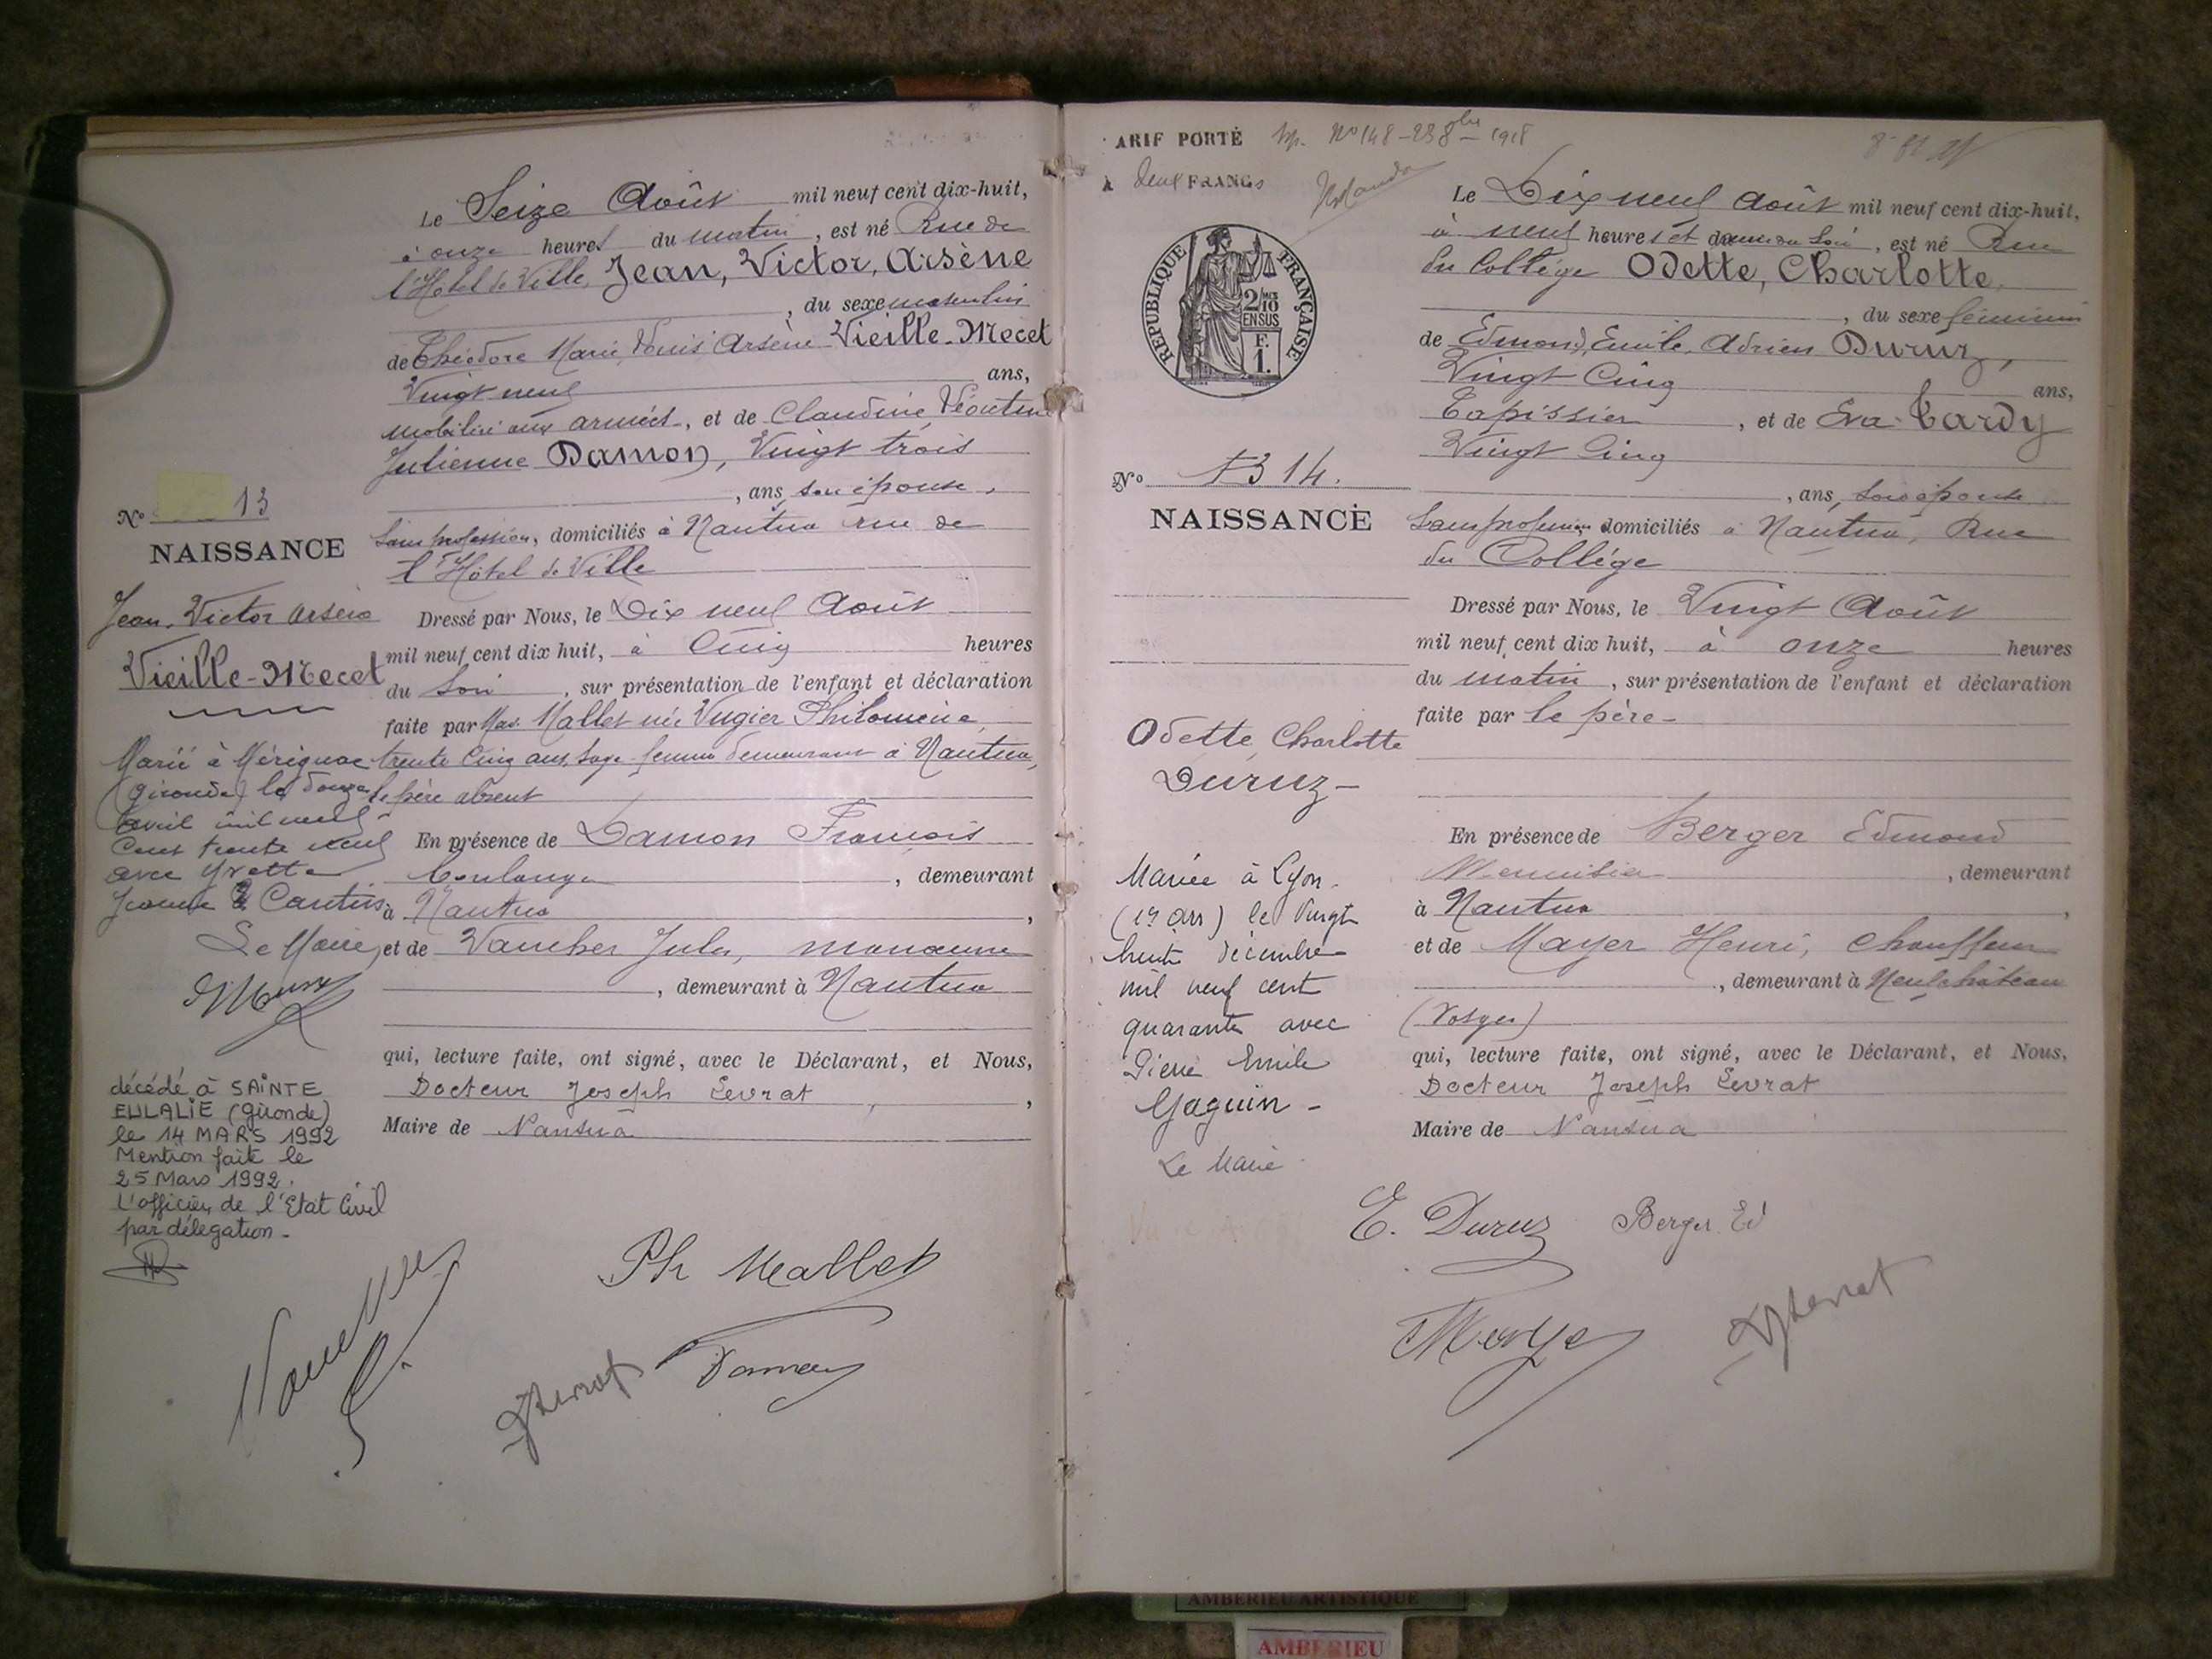 Le Seize Août mil neuf cent dix-huit,
à onze heures du matin, est né Rue de
l'Hôtel de Ville, Jean, Victor, Arsène
, du sexe masculin
de Théodore Marie Louis Arsène Vieille-Mecet
Vingt neuf ans,
mobilisé aux armées, et de Claudine, Léontine
Julienne Damon, Vingt trois
, ans, son épouse,
sans profession, domiciliés à Nantua rue de
l'Hôtel de Ville
Dressé par Nous, le Dix neuf Août
mil neuf cent dix huit, à Cinq heures
du Soir, sur présentation de l'enfant et déclaration
faite par Mad. Mallet née Vugier Philomène
trente Cinq ans, Sage-femme demeurant à Nantua,
le père absent
En présence de Damon François
Boulanger, demeurant
à Nantua,
et de Vaucher Jules,
, demeurant à Nantua
qui, lecture faite, ont signé, avec le Déclarant, et Nous,
Docteur Joseph Levrat,
Maire de Nantua
N° 13
NAISSANCE
Jean. Victor Arsène
Vieille-Mecet
Marié à Mérignac
(Gironde) le douze
avril mil neuf
cent trente neuf
avec Yvette
Le Maire,
décédé à SAINTE
EULALIE (Gironde)
le 14 MARS 1992
Mention faite le
25 Mars 1992.
L'officier de l'Etat Civil
par délégation.
Ph Mallet
Levrat
Damon
ARIF PORTÉ
N° 148 - 23 8bre 1918
À deux FRANCS
REPUBLIQUE FRANÇAISE
2/10
EN SUS
F.
1.
Le Dix neuf Août mil neuf cent dix-huit,
à neuf heures et demie du Soir, est né Rue
du Collège Odette, Charlotte,
, du sexe féminin
de Edmond, Emile, Adrien Duruz,
Vingt Cinq ans,
Tapissier, et de Eva Tardy
Vingt Cinq
, ans, son épouse
Sans profession, domiciliés à Nantua, Rue
du Collège
Dressé par Nous, le Vingt Août
mil neuf cent dix huit, à onze heures
du matin, sur présentation de l'enfant et déclaration
faite par le père -
En présence de Berger Edmond
Menuisier, demeurant
à Nantua,
et de Mayer Henri, Chauffeur
, demeurant à Neufchâteau
(Vosges)
qui, lecture faite, ont signé, avec le Déclarant, et Nous,
Docteur Joseph Levrat
Maire de Nantua
N° 13 14.
NAISSANCE
Odette Charlotte
Duruz -
Mariée à Lyon
le Vingt
huit décembre
mil neuf cent
quarante avec
Pierre Emile
Gaguin -
Le Maire
E. Duruz
Berger Ed
Levrat
AMBERIEU ARTISTIQUE
AMBERIEU